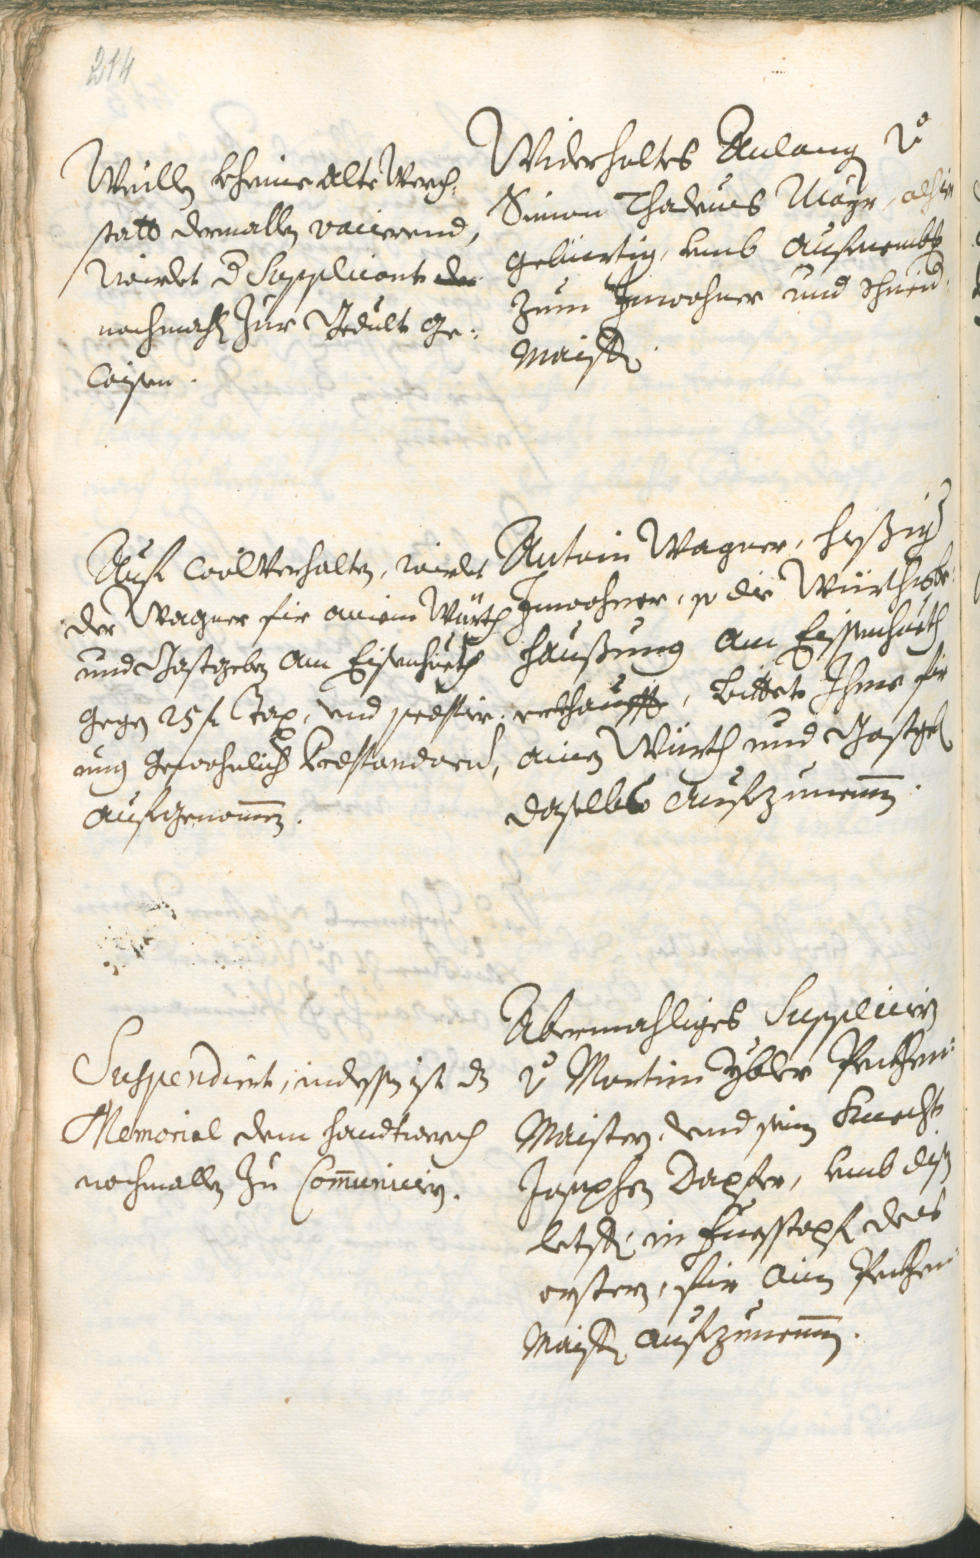 214
Weillen kheine alte Werch-
statt dermallen vacierend,
wirdet d Supplicant
nochmahl zur Gedult ge-
wisen.
Widerholtes Anlang v
Simon Thadeus Mayr, alhir
gebürtig, umb aufnemb
zum Inwohner und Schneid
Maister.
Auf wollverhalten, wirdet
der Wagner fir ainem Würth
und Gastgeben am Eisenhueth
gegen 25 f Tax, und praestir-
ung gewohnlich Praestandorum,
aufgenomen.
Antoin Wagner, hissig
Inwohner, so die Würths be-
haußung am Eissenhueth
erkhaufft, bittet Ihme fir
ainen Würth und Gastgeb
daselbst aufzunemen.
Suspendirt, indessen ist ds
Memorial dem handtwerch
nochmallen zu Comuniciern.
Abermahliges Suppliciern
v Martin Ybler Pekhen-
Maistern, und sein Knecht
Josephen Dapfer, umb disen
letstern in Fuesstapf des
erstern, fir ain Pekhen
Maister aufzunemen.